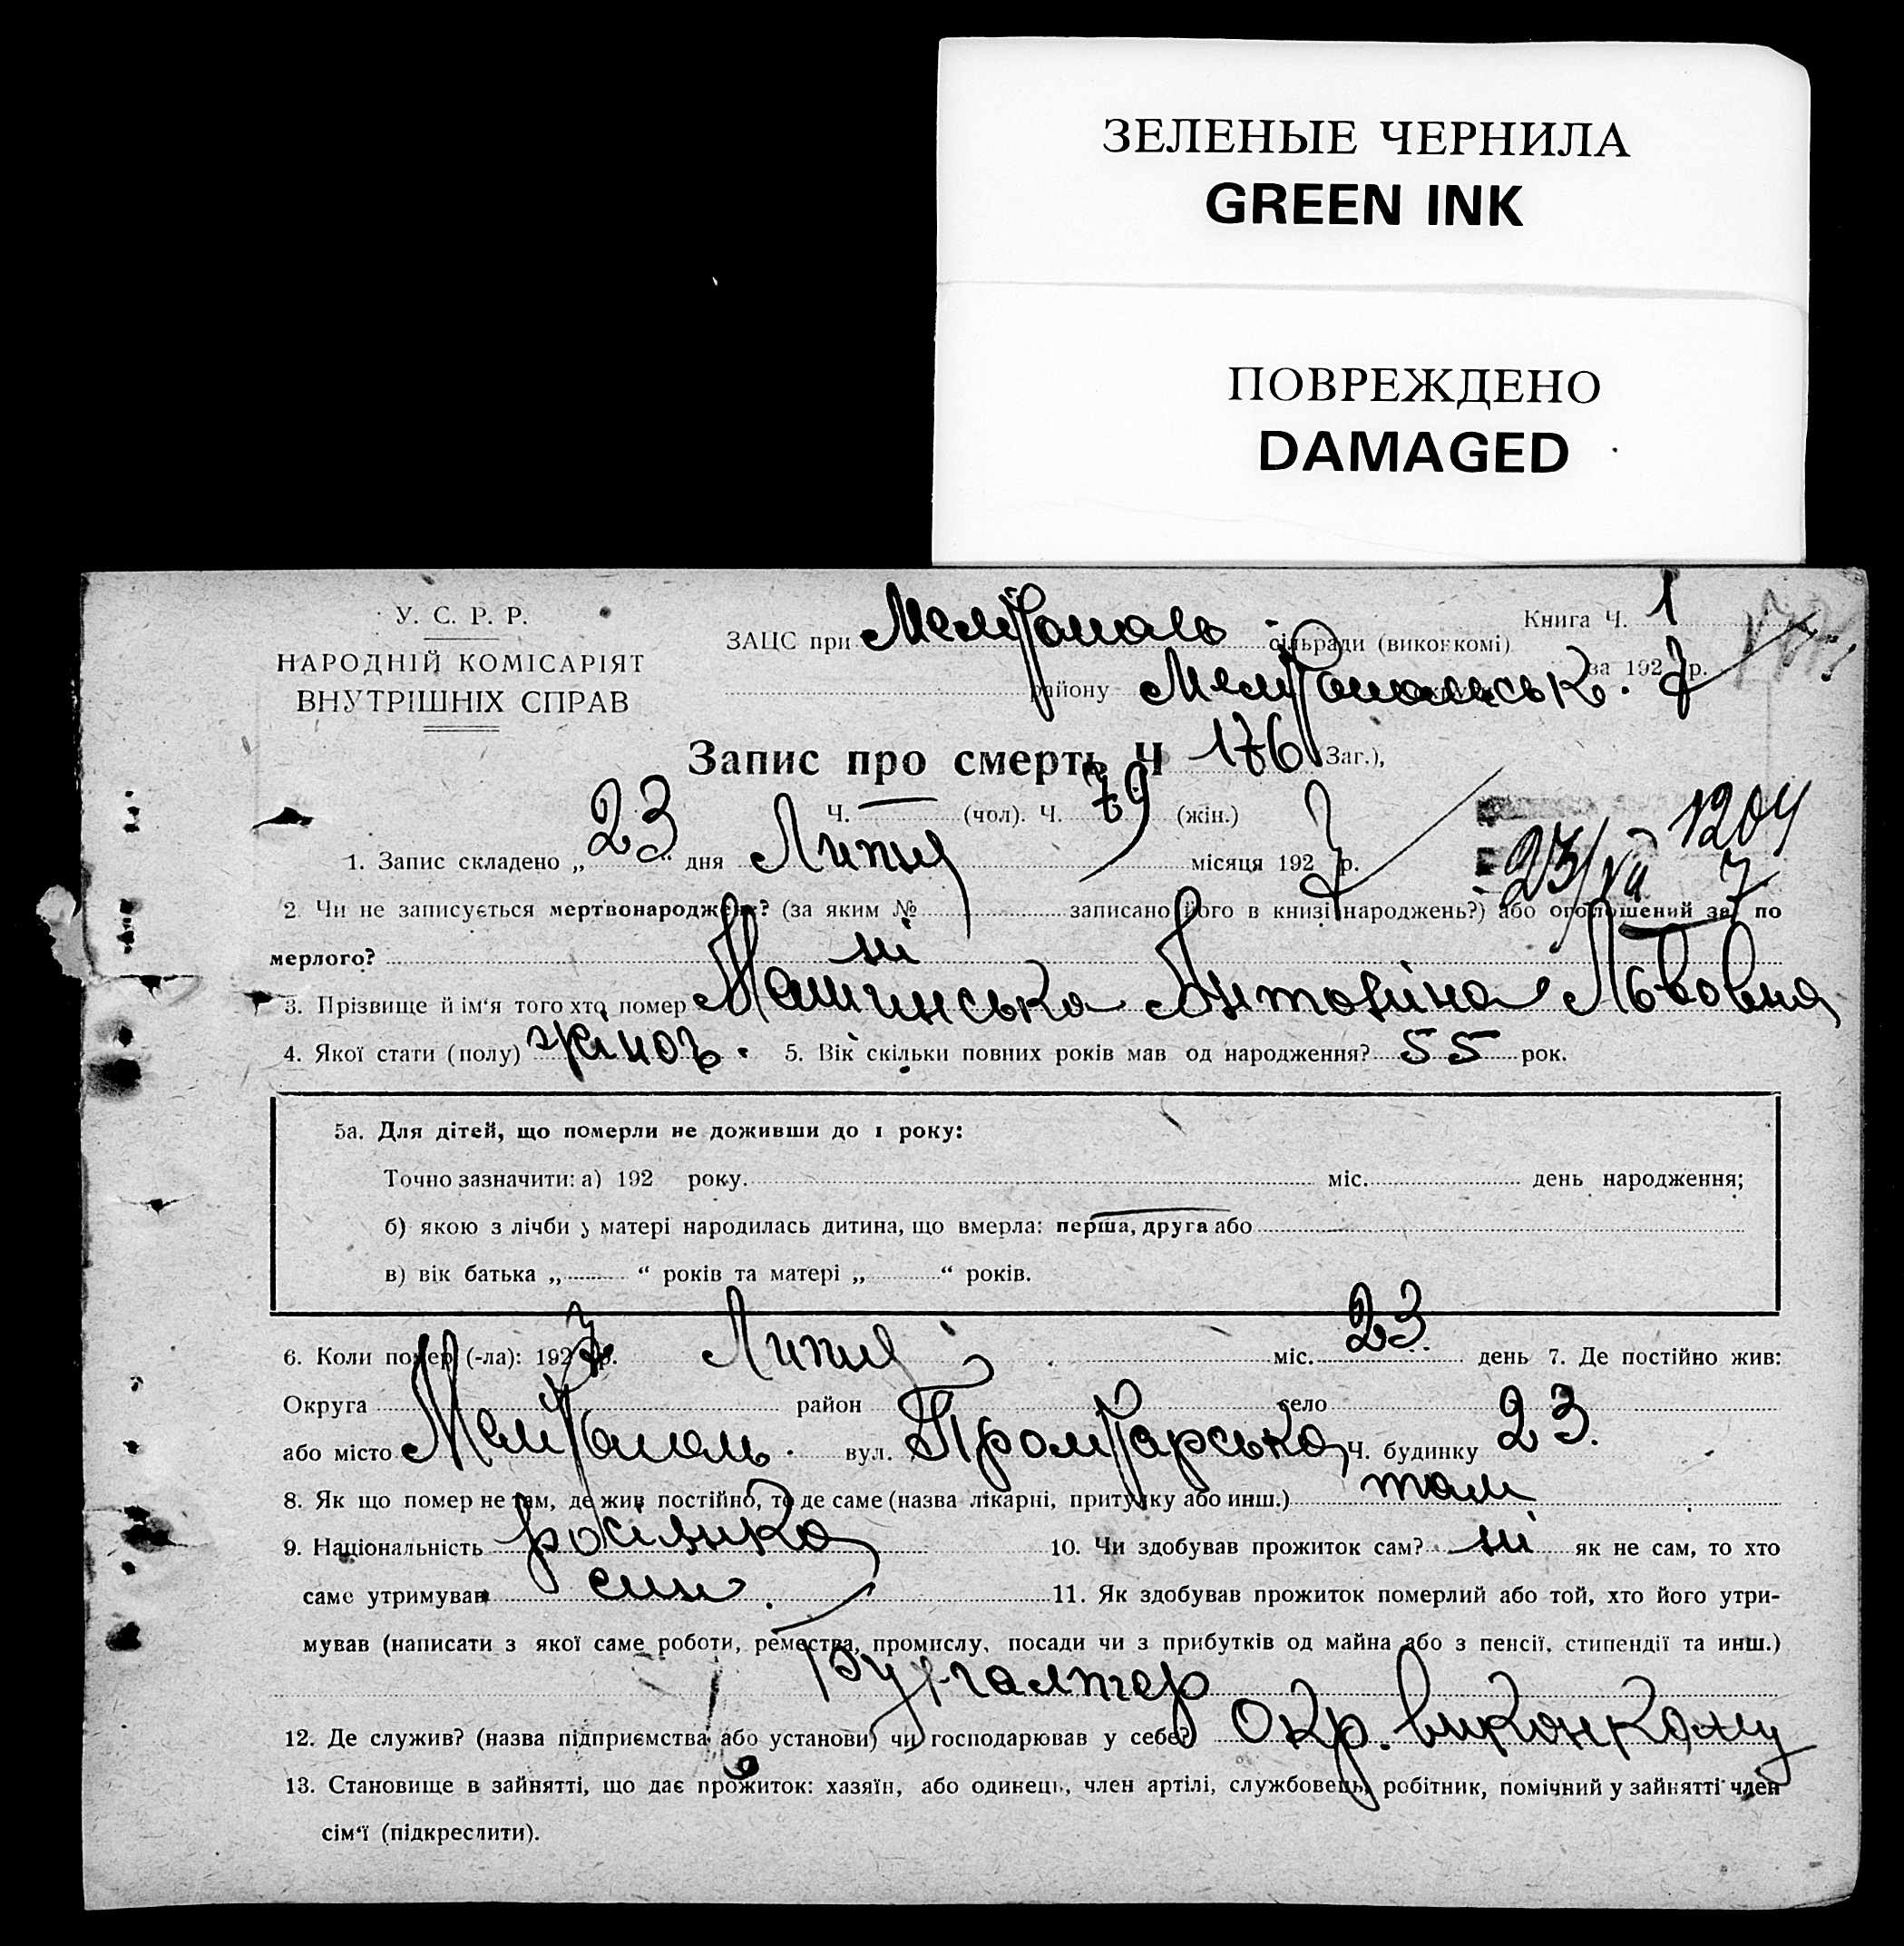 ЗЕЛЕНЫЕ ЧЕРНИЛА
GREEN INK
ПОВРЕЖДЕНО
DAMAGED
У. С. Р. Р.
НАРОДНІЙ КОМІСАРІЯТ
ВНУТРІШНІХ СПРАВ
Книга Ч. 1
ЗАЦС при Мелітополь сільради (виконкомі)
за 1927 р.
району Мелітопольськ.
Запис про смерть Ч 176 (Заг.),
Ч. — (чол). Ч. 79 (жін.)
1204
23/VII 7
1. Запис складено „23“ дня Липня місяця 1927 р.
2 Чи не записується мертвонароджен.? (за яким № записано його в книзі народжень?) або оголошений за по
мерлого? ні
3. Прізвище й ім‘я того хто помер Машинська Антоніна Львовна
4. Якої стати (полу) жіноч. 5. Вік скільки повних років мав од народження? 55 рок.
5а. Для дітей, що померли не доживши до 1 року:
Точно зазначити: а) 192 року. міс. день народження;
б) якою з лічби у матері народилась дитина, що вмерла: перша, друга або
в) вік батька „ “ років та матері „ “ років.
6. Коли помер (-ла): 1927 р. Липня міс. 23. день 7. Де постійно жив:
Округа район село
або місто Мелітополь. вул. Пролітарська Ч. будинку 23.
8. Як що помер не там, де жив постійно, то де саме (назва лікарні, притулку або инш.) там
9. Національність росіянка 10. Чи здобував прожиток сам? ні як не сам, то хто
саме утримував син. 11. Як здобував прожиток померлий або той, хто його утри-
мував (написати з якої саме роботи, ремества, промислу, посади чи з прибутків од майна або з пенсії, стипендії та инш.)
Бухгалтер
12. Де служив? (назва підприємства або установи) чи господарював у себе? Окр. виконкому
13. Становище в зайнятті, що дає прожиток: хазяїн, або одинець, член артілі, службовець, робітник, помічний у зайнятті член
сім‘ї (підкреслити).